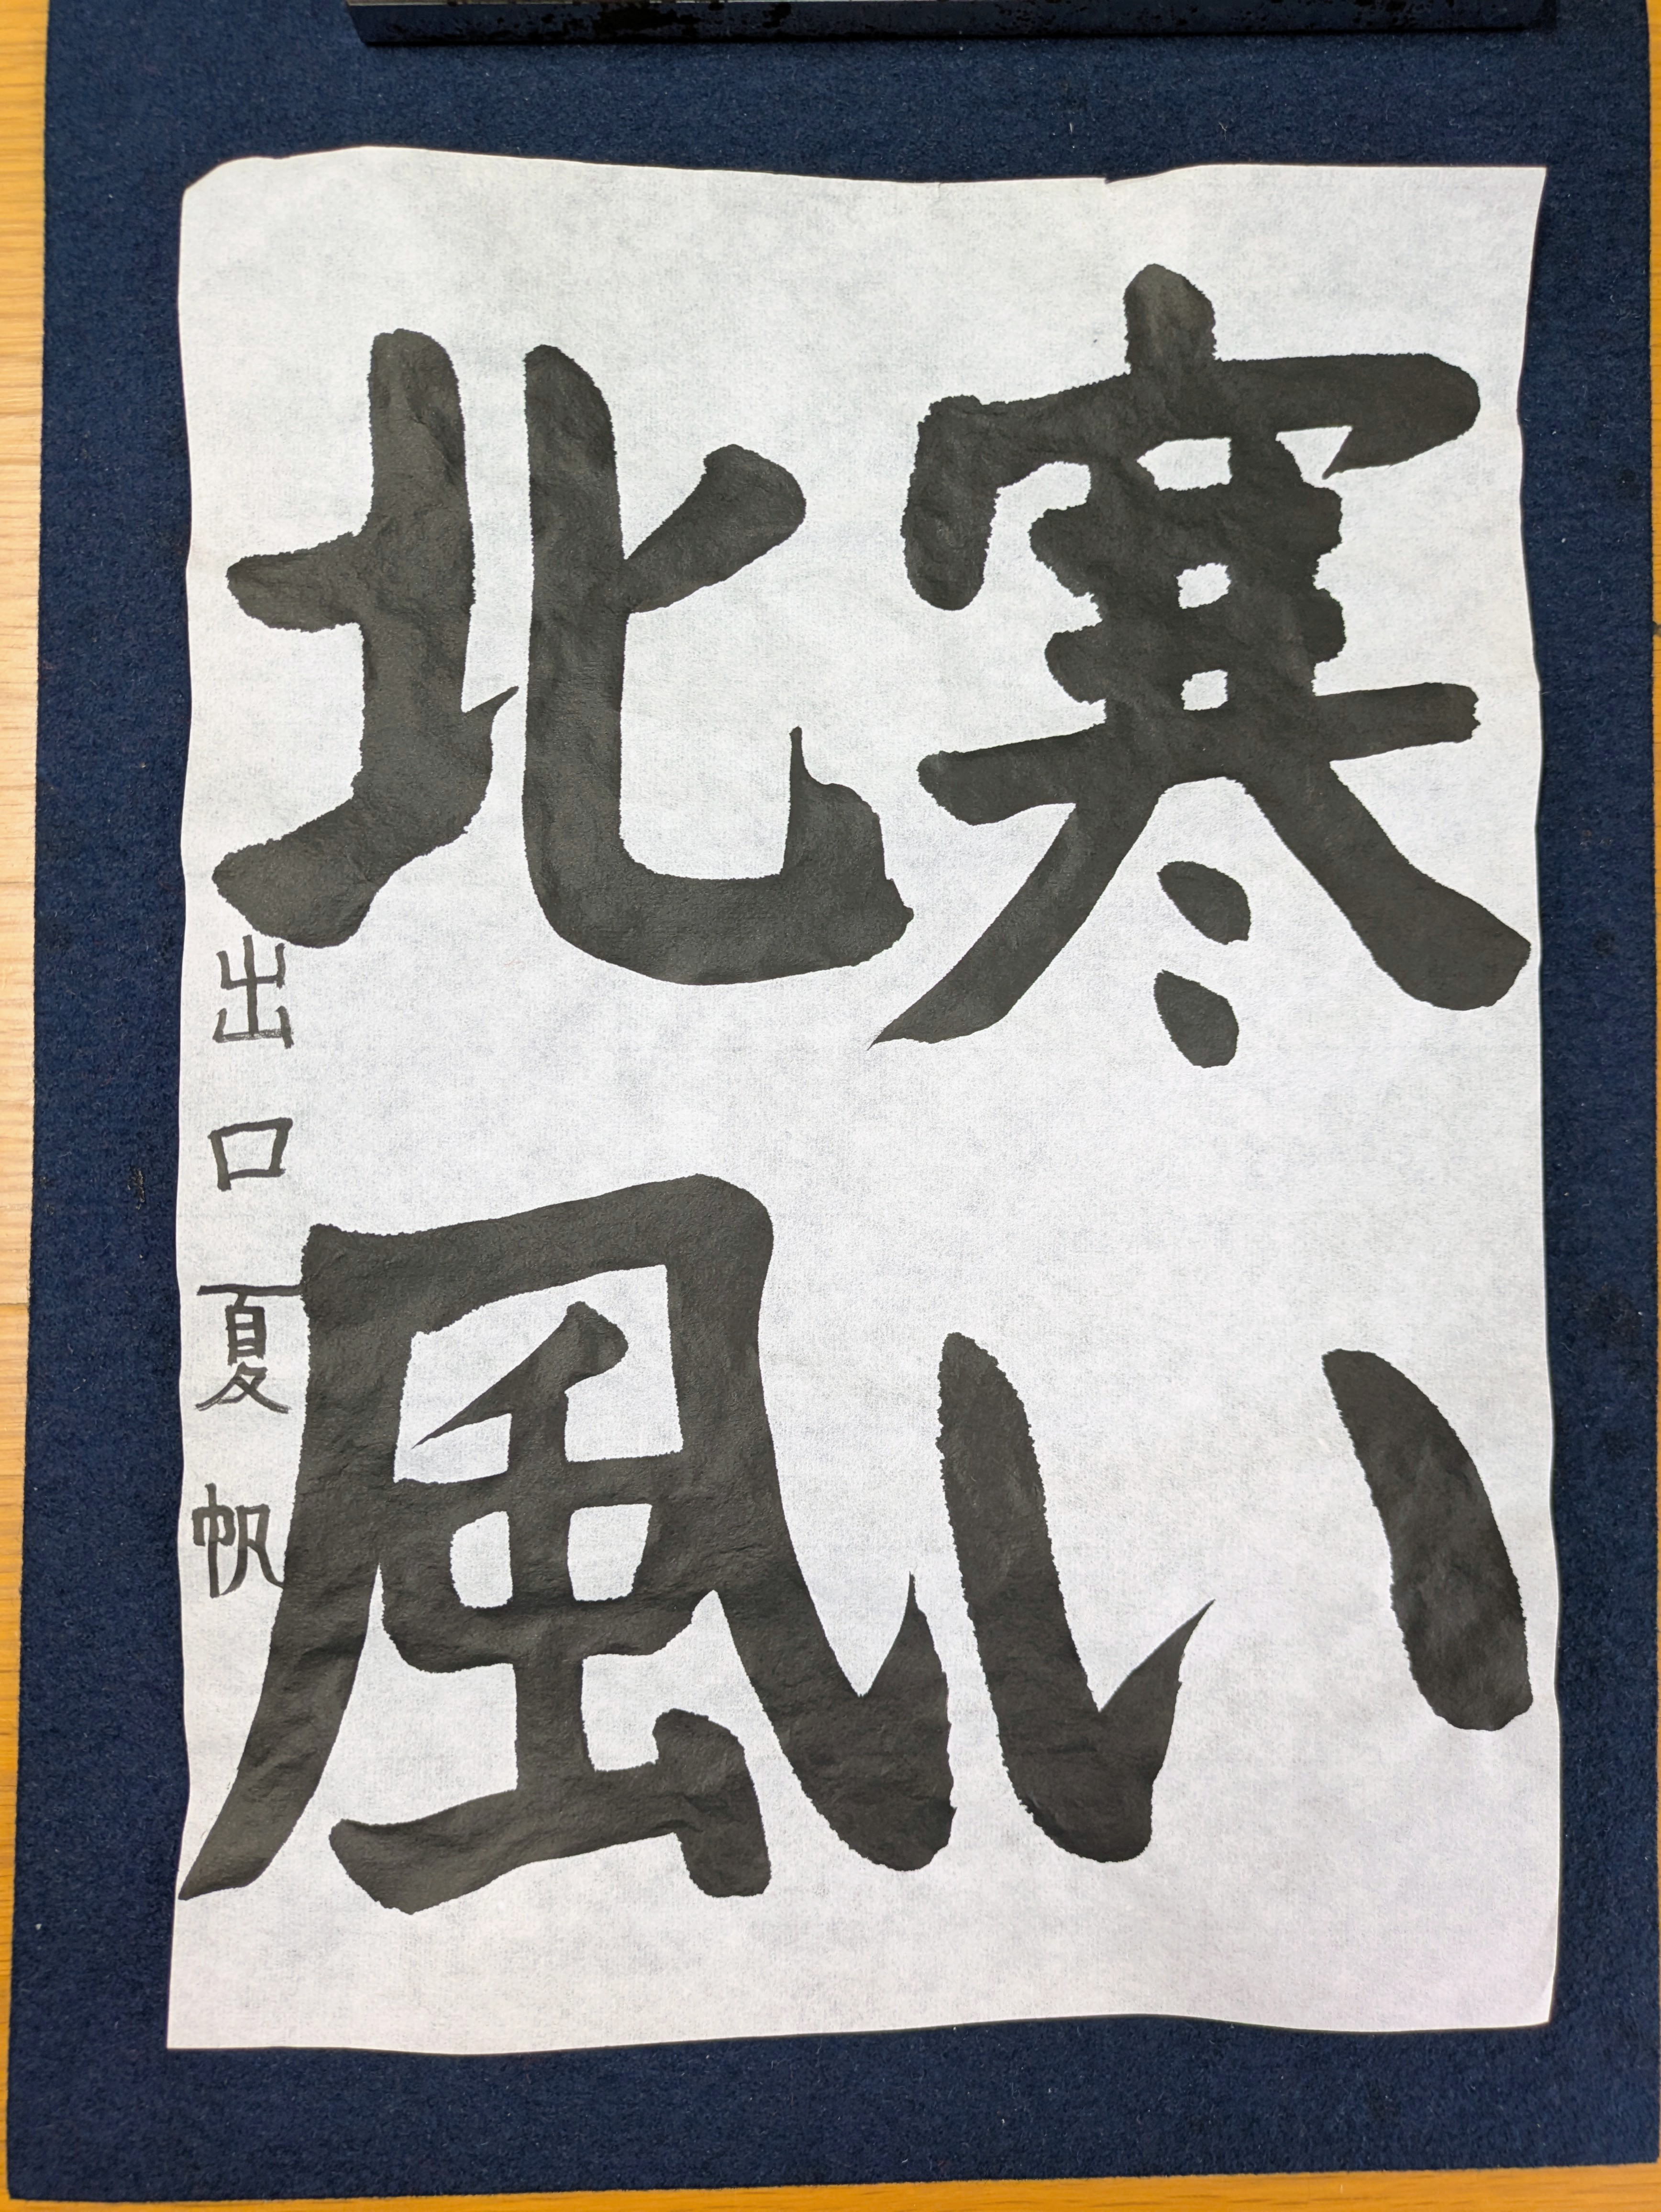 寒い
北風
出口夏帆